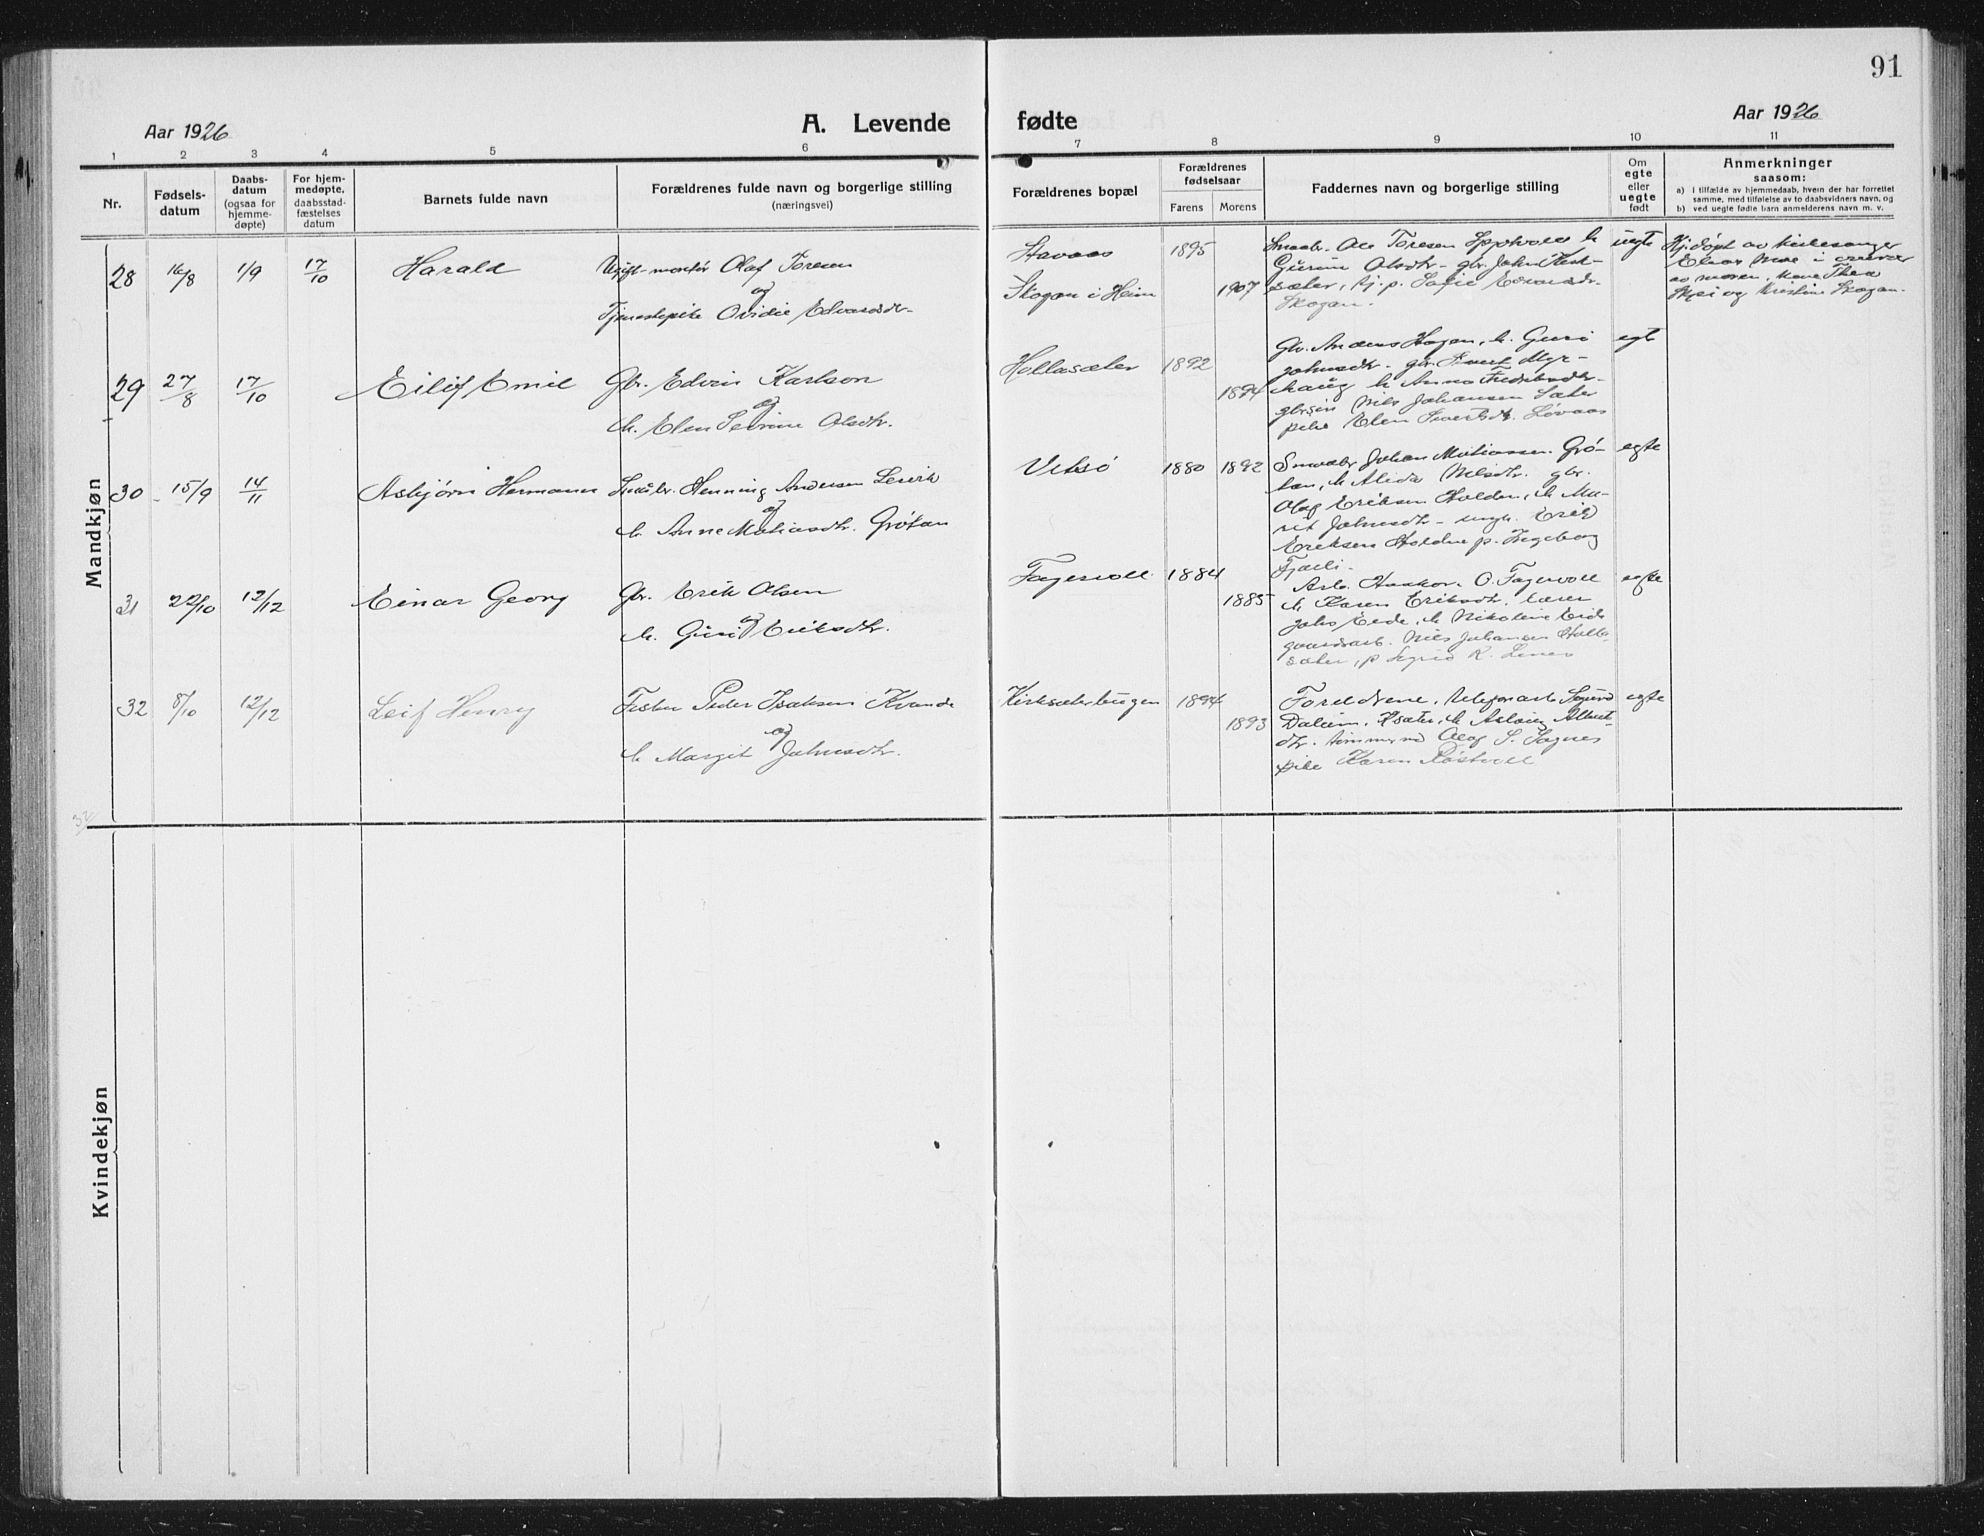 91
Aar 1926
A. Levende fødte
Aar 1926
1 2 3 4 5 6 7 8 9 10 11
Nr.
Fødsels-
datum
Daabs-
datum
(ogsaa for
hjemme-
døpte)
For hjem-
medøpte,
daabsstad-
fæstelses
datum
Barnets fulde navn
Forældrenes fulde navn og borgerlige stilling
(næringsvei)
Forældrenes bopæl
Forældrenes
fødselsaar
Farens Morens
Faddernes navn og borgerlige stilling
Om
egte
eller
uegte
født
Anmerkninger
saasom:
a) I tilfælde av hjemmedaab, hvem der har forrettet
samme, med tilføielse av to daabsvidners navn, og
b) ved uegte fødte barn anmelderens navn m. v.
Mandkjøn
28 16/8 1/9 17/10 Harald
Ugift montør Olaf Toresen
og
Tjenestepike Ovidie Edvardsdr.
Stavaas 1895
Skogan i Heim 1907
Smaabr. Ole Toresen
Gurine Olsdtr. gbr. John
sæter, tj.p. Sofie Edvardsdr.
Skogan.
uegte
Hj.døpt av kirkesanger
Elias Moe i nærvær
av moren, kone Thea
og Kristine Skogan.
29 27/8 17/10 Eilif Emil
Gbr. Edvin Karlson
og
h. Elen Sevrine Olsdtr.
Hollasæter 1892
1894
Gbr. Anders Hagan, h. Guri
Johnsdtr. gbr. Sivert Myr-
haug h. Anna Fredriksdtr.
gbr.søn Nils Johansen Sæter
pike Elen Sivertsdtr. Løvaas
egte
30 15/9 14/11 Asbjørn Hermann
Smaabr. Henning Andersen
og
h. Anne Matiasdtr. Grøtan
Vitsø 1880 1892
Smaabr. Johan Matiassen Grø-
tan, h. Alida Nilsdtr. gbr.
Olaf Eriksen Holden, h. Ma-
rit Johnsdtr. - ungk. Erik
Eriksen Holden p. Ingeborg
Fjæli.
egte
31 22/10 12/12 Einar Georg
Gbr. Erik Olsen
og
h. Guri Eriksdtr.
Fagervoll 1884
1885
Arb. Haakon O. Fagervoll
h. Karen Eriksdtr. lærer
Johs Eide, h. Nikoline Eide
gaardsarb. Nils Johansen Holla-
sæter, p. Sigrid K. Lines
egte
32 8/10 12/12 Leif Henry
Fisker Peder Isaksen Kvande
og
h. Margit Johnsdtr.
Kirksæterhaugen 1894
1893
Foreldrene, telefonarb. Sigurd
Dalum, Ksæter, h. Aslaug Albert-
dtr. tømmerm Olaf S. Sagnes
pike Karen Røstvoll
egte
32
Kvindekjøn